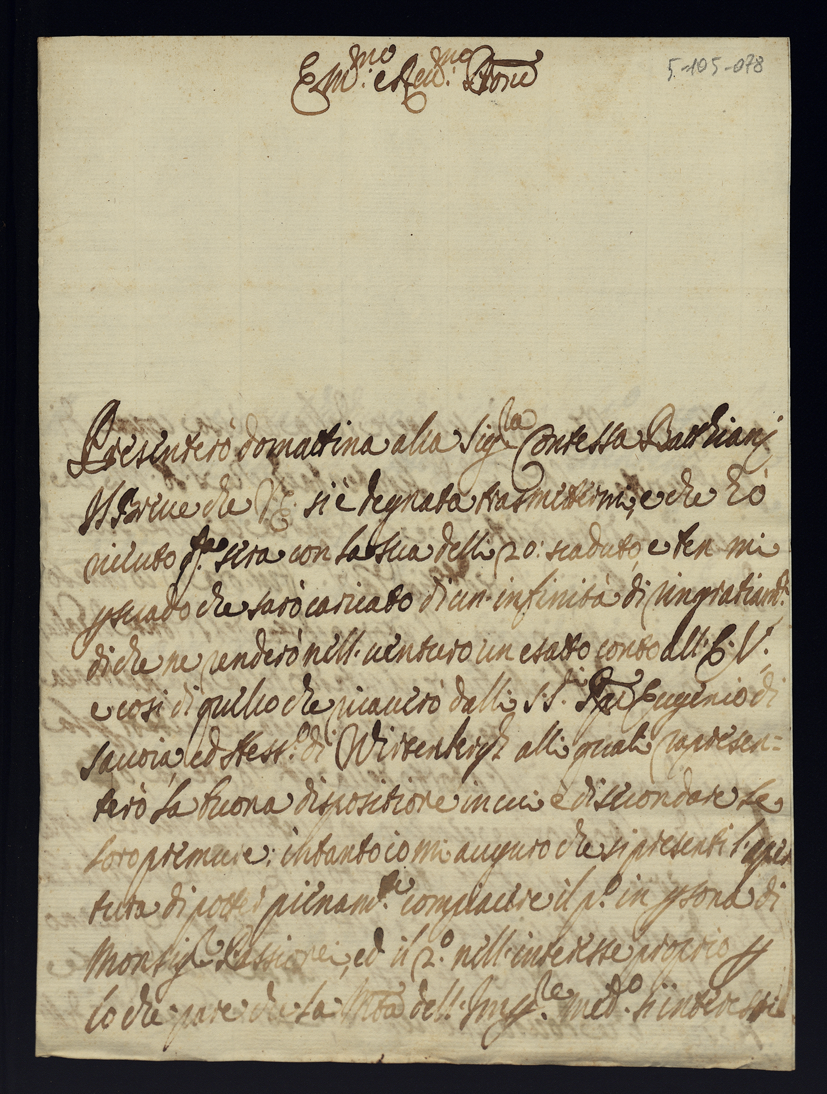 Em.mo e Rev.mo Prone
5-105-078
Presenterò domattina alla Sig.ra Contessa Batthianj
Il Breve che V.E. si è degnata trasmettermi, e che hò
riceuto sera con la sua delli 20: scaduto, e ten mi
psuado che sarò caricato di un' infinità di ringratiam.ti
di che ne renderò nell' venturo un esatto conto all' E. V.
e così di quello che ricaverò dalli SS.ri Eugenio di
Savoia, ed stess.o di Wirtenbergh alli quali rapresen=
terò la buona dispositione in cui è di secondare le
loro premure; intanto io mi auguro che si presenti l'aper
tura di poter pienam.te compiacere il p.o in psona di
Monsig.r Passionei, ed il 2.o nell' interesse proprio p
lo che pare che la M.tà dell' Imp.re med.o s'interessi